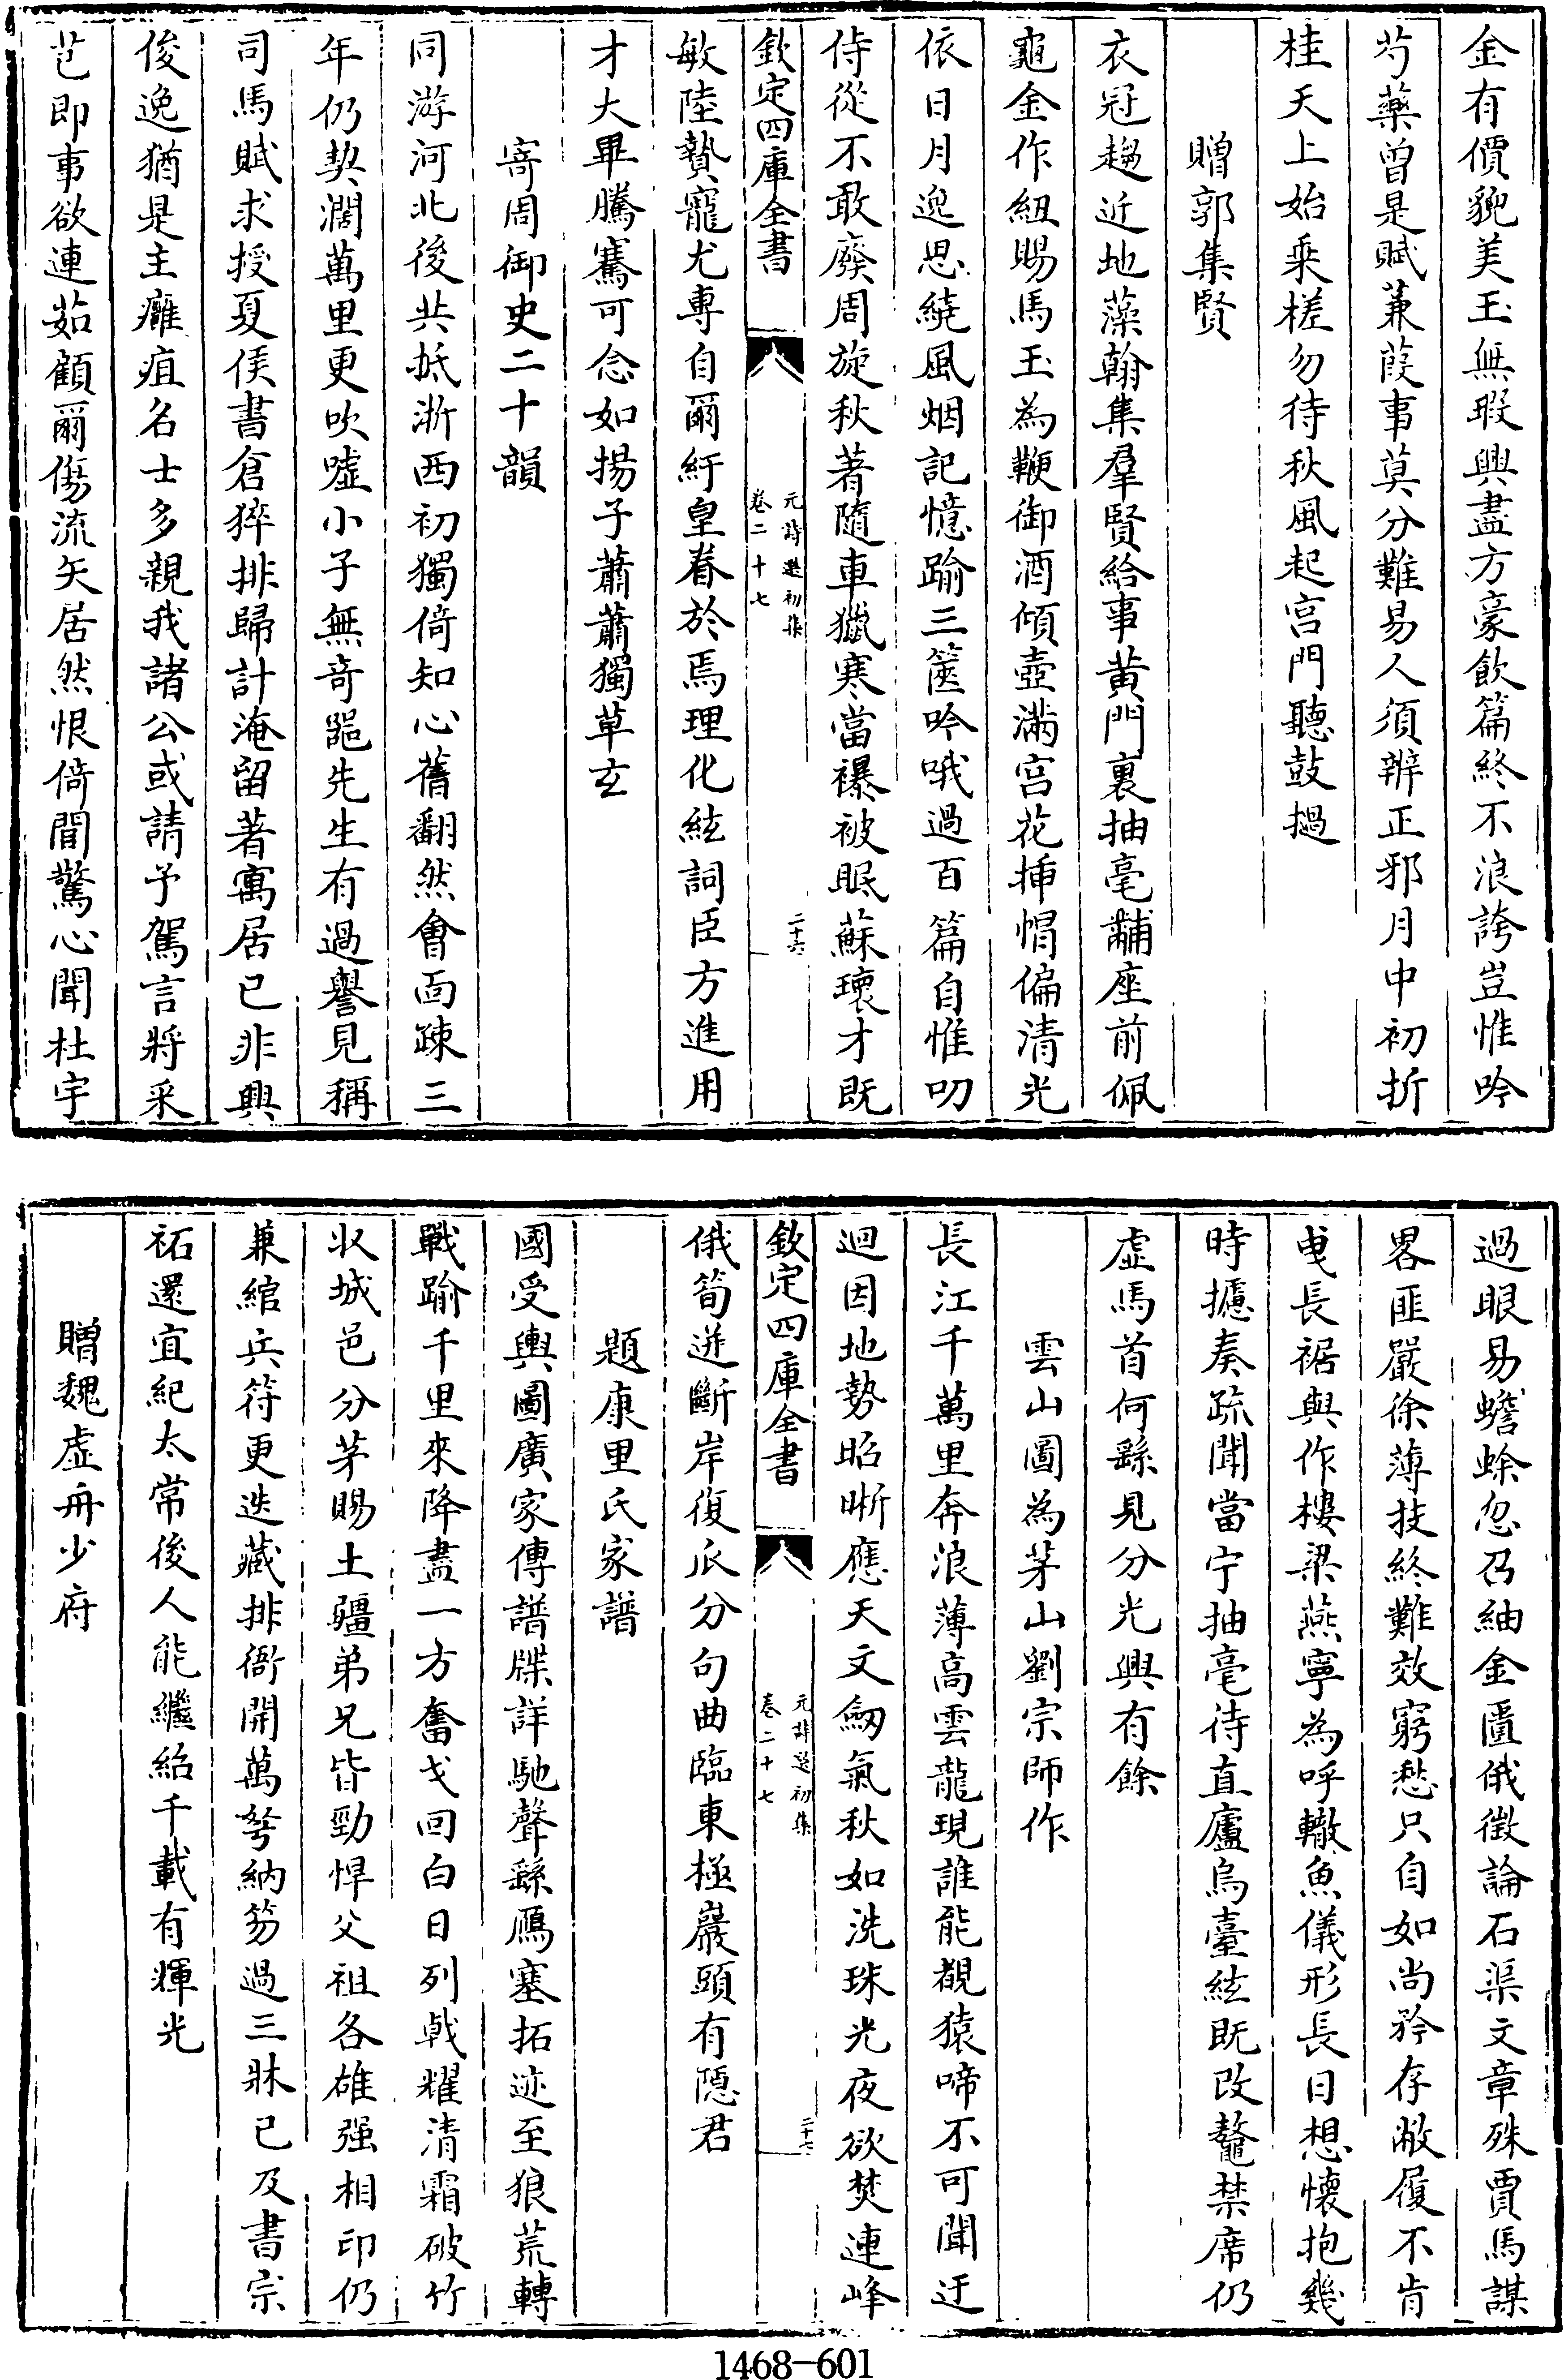 金有價貌美玉無瑕興盡方豪飲篇終不浪誇豈惟吟
芍藥曾是賦蒹葭事莫分難易人須辨正邪月中初折
桂天上始乘槎勿待秋風起宫門聽鼓撾
贈郭集賢
衣冠趨近地藻翰集羣賢給事黄門裏抽毫黼座前佩
龜金作紐賜馬玉為鞭御酒傾壺滿宫花揷帽偏清光
依日月逸思繞風烟記憶踰三篋吟哦過百篇自惟叨
侍從不敢廢周旋秋著隨車獵寒當襆被眠蘇瓌才既
欽定四庫全書
元詩選初集
卷二十七
二十六
敏陸贄寵尤専自爾紆皇眷於焉理化絃詞臣方進用
才大畢騰騫可念如揚子蕭蕭獨草玄
寄周御史二十韻
同游河北後共抵浙西初獨倚知心舊翻然會面疎三
年仍契濶萬里更吹噓小子無竒噐先生有過譽見稱
司馬賦求授夏侯書倉猝排歸計淹留著寓居已非興
俊逸猶是主癰疽名士多親我諸公或請予駕言將采
芑即事欲連茹顧爾傷流矢居然恨倚閭驚心聞杜宇
過眼易蟾蜍忽召紬金匱俄徴論石渠文章殊賈馬謀
畧匪嚴徐薄技終難效窮愁只自如尚矜存敝履不肯
曵長裾與作摟梁燕寧為呼轍魚儀形長日想懷抱幾
時攄奏疏聞當宁抽毫待直廬烏臺絃既改鼇禁席仍
虚馬首何繇見分光興有餘
雲山圖為茅山劉宗師作
長江千萬里奔浪薄高雲龍現誰能覩猿啼不可聞迂
迴因地勢昭晣應天文劔氣秋如洗珠光夜欲焚連峰
欽定四庫全書
元詩選初集
卷二十七
二十七
俄筍迸斷岸復瓜分句曲臨東極巖頭有隱君
題康里氏家譜
國受輿圖廣家傳譜牒詳馳聲繇鴈塞拓迹至狼荒轉
戰踰千里來降盡一方奮戈回白日列㦸耀清霜破竹
收城邑分茅賜土疆弟兄皆勁悍父祖各雄强相印仍
兼綰兵符更迭藏排衙開萬弩納笏過三牀已及書宗
祏還宜紀太常後人能繼紹千載有輝光
贈魏虚舟少府
1468-601